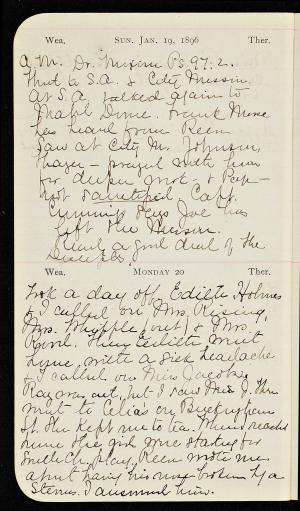 Wea. SUN. JAN. 19, 1896 Ther.
A.M. Dr. Ps. 97:2.
Went to S.A. & City Mission
At S.A. talked again to
Mabil Dome. Frank
has heard from Reen
Saw at City M. Johnson,
Thayer - prayed with him
for deeper work & Pap-
not sanctified. Capt.
Cummings says Joe has
left the Mission.
Read a good deal of the
Disciples.
Wea. MONDAY 20 Ther.
Took a day off. Edith Holmes
& I called on Mrs. Rising,
Mrs. Whipple, (out) & Mrs.
Rand. Then Edith went
home with a sick headache
& I called on Miss Jacobs.
Ray was out, but I saw Miss J. Then
went to Celia's on Buckingham
St. She kept me to tea. When I reached
home the girls were starting for
Smith Cl. play. Reen wrote me
about having his nose broken by a
Stevens. I answered him.